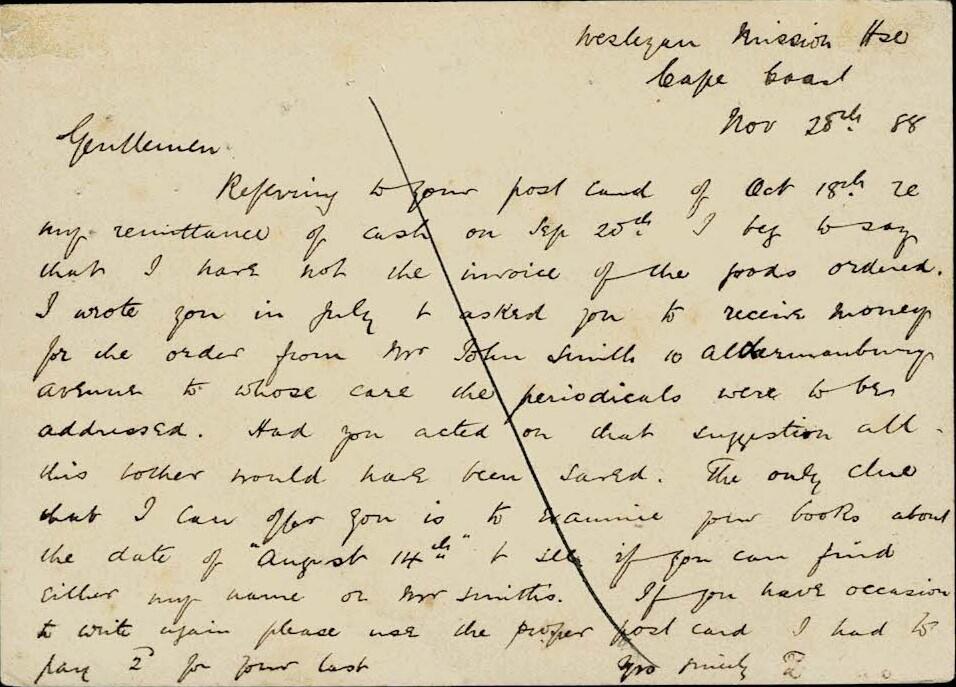 Wesleyan Mission Hse
Cape Coast
Nov 28th 88
Gentlemen
Referring to your post card of Oct 18th re
my remittance of cash on Sep 20th I beg to say
that I have not the invoice of the goods ordered.
I wrote you in July & asked you to receive money
for the order from Mr John Smith 10 Aldermanbury
avenue to whose care the periodicals were to be
addressed. Had you acted on that suggestion all
this bother would have been saved. The only clue
that I can offer you is to examine your books about
the date of "August 14th" & see if you can find
either my name or Mr Smiths. If you have occasion
to write again please use the proper post card I had to
pay 2d for your last Yrs